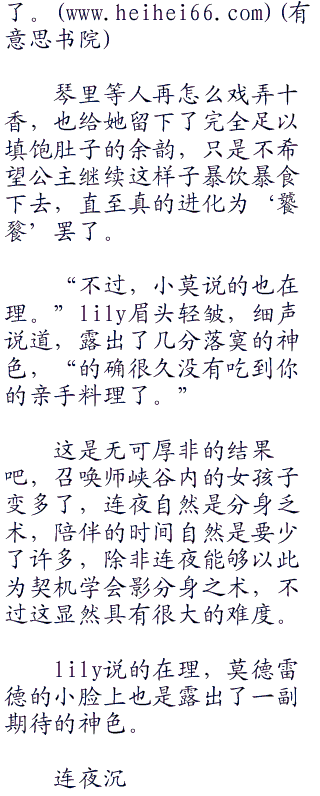 了。(www.heihei66.com)(有
意思书院)
琴里等人再怎么戏弄十
香，也给她留下了完全足以
填饱肚子的余韵，只是不希
望公主继续这样子暴饮暴食
下去，直至真的进化为‘饕
餮’罢了。
“不过，小莫说的也在
理。”lily眉头轻皱，细声
说道，露出了几分落寞的神
色，“的确很久没有吃到你
的亲手料理了。”
这是无可厚非的结果
吧，召唤师峡谷内的女孩子
变多了，连夜自然是分身乏
术，陪伴的时间自然是要少
了许多，除非连夜能够以此
为契机学会影分身之术，不
过这显然具有很大的难度。
lily说的在理，莫德雷
德的小脸上也是露出了一副
期待的神色。
连夜沉